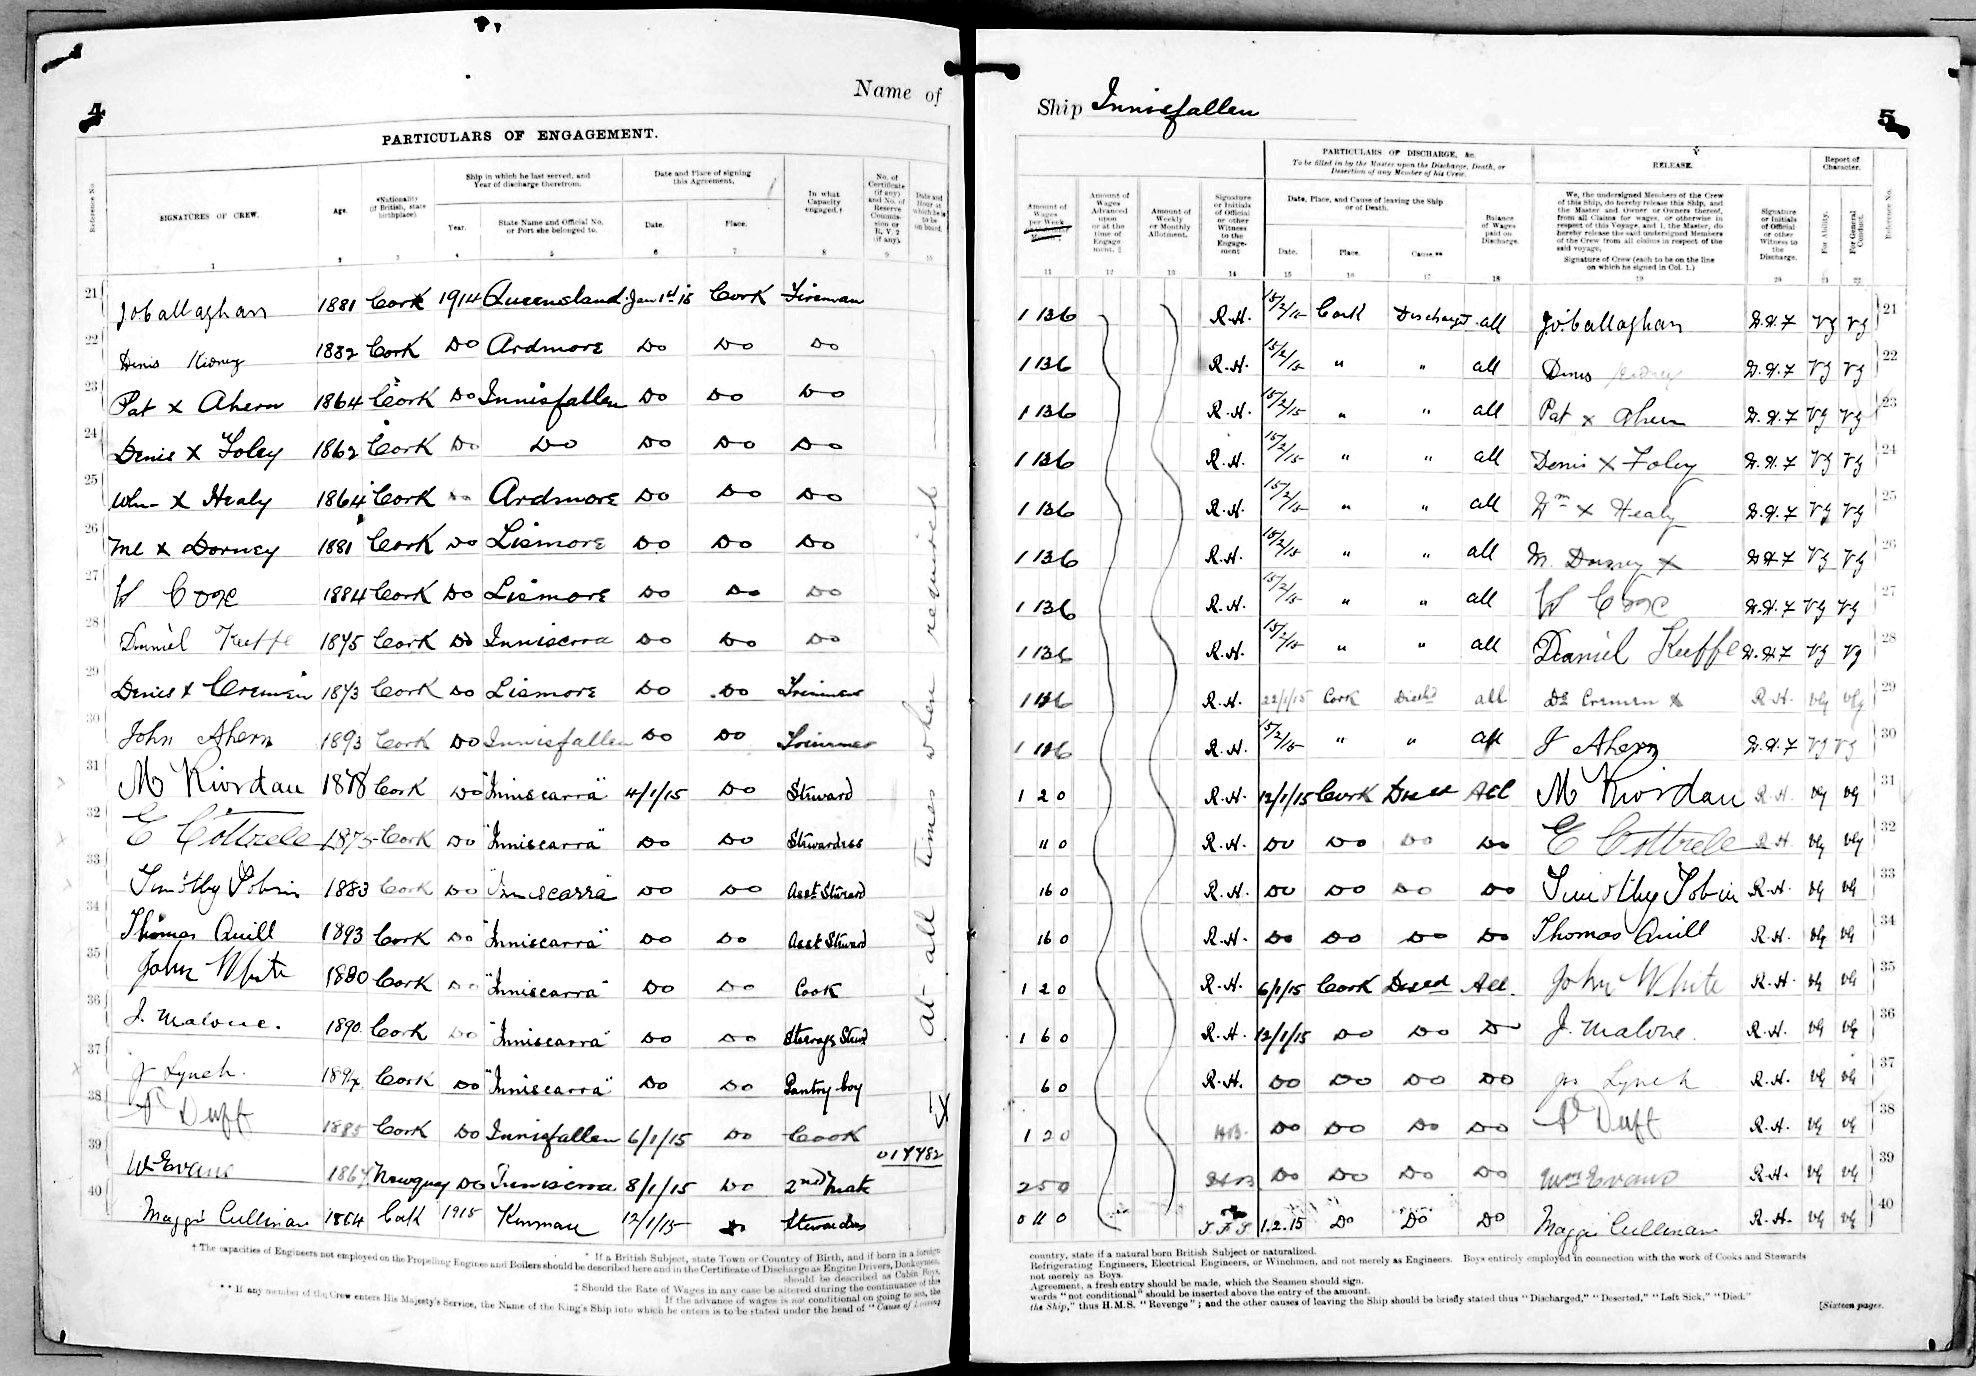 4
Name of
PARTICULARS OF ENGAGEMENT.
Reference No.
SIGNATURES OF CREW.
Age.
*Nationality (if British, state birthplace).
Ship in which he last served, and Year of discharge therefrom.
Year.
State Name and Official No. or Port she belonged to.
Date and Place of signing this Agreement.
Date.
Place.
In what Capacity engaged.†
No. of Certificate (if any) and No. of Reserve Commission or R.V. 2 (if any).
Date and Hour at which he is to be on board.
1 2 3 4 5 6 7 8 9 10
21 J O'Callaghan 1881 Cork 1914 Queensland Jan 1st 15 Cork Fireman
22 Denis Kidney 1882 Cork Do Ardmore Do Do Do
23 Pat x Ahern 1864 Cork Do Innisfallen Do Do Do
24 Denis x Foley 1862 Cork Do Do Do Do Do
25 Wm x Healy 1864 Cork Do Ardmore Do Do Do
26 Ml x Dorney 1881 Cork Do Lismore Do Do Do
27 W Cogx 1884 Cork Do Lismore Do Do Do
28 Daniel Keeffe 1875 Cork Do Inniscarra Do Do Do
29 Denis x Cremin 1873 Cork Do Lismore Do Do Trimmer
30 John Ahern 1893 Cork Do Innisfallen Do Do Trimmer
31 M Riordan 1878 Cork Do "Inniscarra" 4/1/15 Do Steward
32 E Cottrell 1875 Cork Do "Inniscarra" Do Do Stewardess
33 Timothy Tobin 1883 Cork Do "Inniscarra Do Do Asst Steward
34 Thomas Quill 1893 Cork Do "Inniscarra" Do Do Asst Steward
35 John White 1880 Cork Do "Inniscarra" Do Do Cook
36 J. Malone. 1890 Cork Do "Inniscarra" Do Do Steerage Stewd
37 J Lynch. 1894 Cork Do "Inniscarra" Do Do Pantry boy
38 P Duff 1885 Cork Do Innisfallen 6/1/15 Do Cook
39 W Evans 1867 Newquay Do Inniscarra 8/1/15 Do 2nd Mate 017782
40 Maggie Cullinan 1864 Cork 1915 Kenmare 12/1/15 Do Stewardess
at all times when required
† The capacities of Engineers not employed on the Propelling Engines and Boilers should be described here and in the Certificate of Discharge as Engine Drivers, Donkeymen,
* If a British Subject, state Town or Country of Birth, and if born in a foreign
should be described as Cabin Boys,
‡ Should the Rate of Wages in any case be altered during the continuance of the
If the advance of wages is not conditional on going to sea, the
** If any member of the Crew enters His Majesty's Service, the Name of the King's Ship into which he enters is to be stated under the head of "Cause of Leaving
Ship Innisfallen
5
PARTICULARS OF DISCHARGE, &c.
To be filled in by the Master upon the Discharge, Death, or Desertion of any Member of his Crew.
RELEASE.
Report of Character.
Amount of Wages per Week
Amount of Wages Advanced upon or at the time of Engagement.‡
Amount of Weekly or Monthly Allotment.
Signature or Initials of Official or other Witness to the Engagement
Date, Place, and Cause of leaving the Ship or of Death.
Date.
Place.
Cause.**
Balance of Wages paid on Discharge.
We, the undersigned Members of the Crew of this Ship, do hereby release this Ship, and the Master and Owner or Owners thereof, from all Claims for wages, or otherwise in respect of this Voyage, and I, the Master, do hereby release the said undersigned Members of the Crew from all claims in respect of the said voyage.
Signature of Crew (each to be on the line on which he signed in Col. 1.)
Signature or Initials of Official or other Witness to the Discharge.
For Ability.
For General Conduct.
Reference No.
11 12 13 14 15 16 17 18 19 20 21 22
1 13 6 R.H. 15/2/15 Cork Dischargd all J O'Callaghan W.H.F VG VG 21
1 13 6 R.H. 15/2/15 " " all Denis Kidney W.H.F VG VG 22
1 13 6 R.H. 15/2/15 " " all Pat x Ahern W.H.F VG VG 23
1 13 6 R.H. 15/2/15 " " all Denis x Foley W.H.F VG VG 24
1 13 6 R.H. 15/2/15 " " all Wm x Healy W.H.F VG VG 25
1 13 6 R.H. 15/2/15 " " all M. Dorney x W.H.F VG VG 26
1 13 6 R.H. 15/2/15 " " all W Cogx W.H.F VG VG 27
1 13 6 R.H. 15/2/15 " " all Daniel Keeffe W.H.F VG Vg 28
1 11 6 R.H. 22/1/15 Cork Dischd all Ds Cremin x R.H. VG VG 29
1 11 6 R.H. 15/2/15 " " all J Ahern W.H.F VG VG 30
1 2 0 R.H. 12/1/15 Cork Discd All M Riordan R.H. VG VG 31
11 0 R.H. Do Do Do Do E Cottrell R.H. VG VG 32
16 0 R.H. Do Do Do Do Timothy Tobin R.H. VG VG 33
16 0 R.H. Do Do Do Do Thomas Quill R.H. VG VG 34
1 2 0 R.H. 6/1/15 Cork Discd All. John White R.H. VG VG 35
1 6 0 R.H. 12/1/15 Do Do Do J. Malone. R.H. VG VG 36
6 0 R.H. Do Do Do Do Js Lynch R.H. VG VG 37
1 2 0 Do Do Do Do P Duff R.H. VG VG 38
2 5 0 Do Do Do Do Wm Evans R.H. VG VG 39
0 11 0 1.2.15 Do Do Do Maggie Cullinan R.H. VG VG 40
country, state if a natural born British Subject or naturalized.
Refrigerating Engineers, Electrical Engineers, or Winchmen, and not merely as Engineers. Boys entirely employed in connection with the work of Cooks and Stewards
not merely as Boys.
Agreement, a fresh entry should be made, which the Seamen should sign.
words "not conditional" should be inserted above the entry of the amount.
the Ship," thus H.M.S. "Revenge"; and the other causes of leaving the Ship should be briefly stated thus "Discharged," "Deserted," "Left Sick," "Died."
[Sixteen pages.